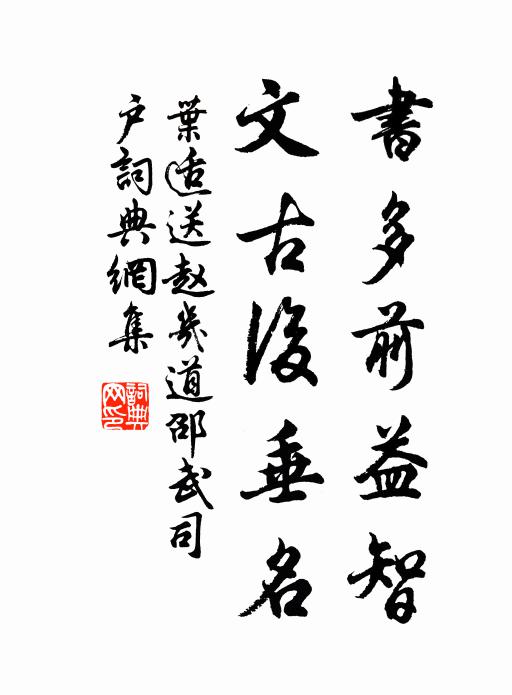 書多前益智
文古後垂名
葉适送赵幾道邵武司
户詞典網集
詞典網印